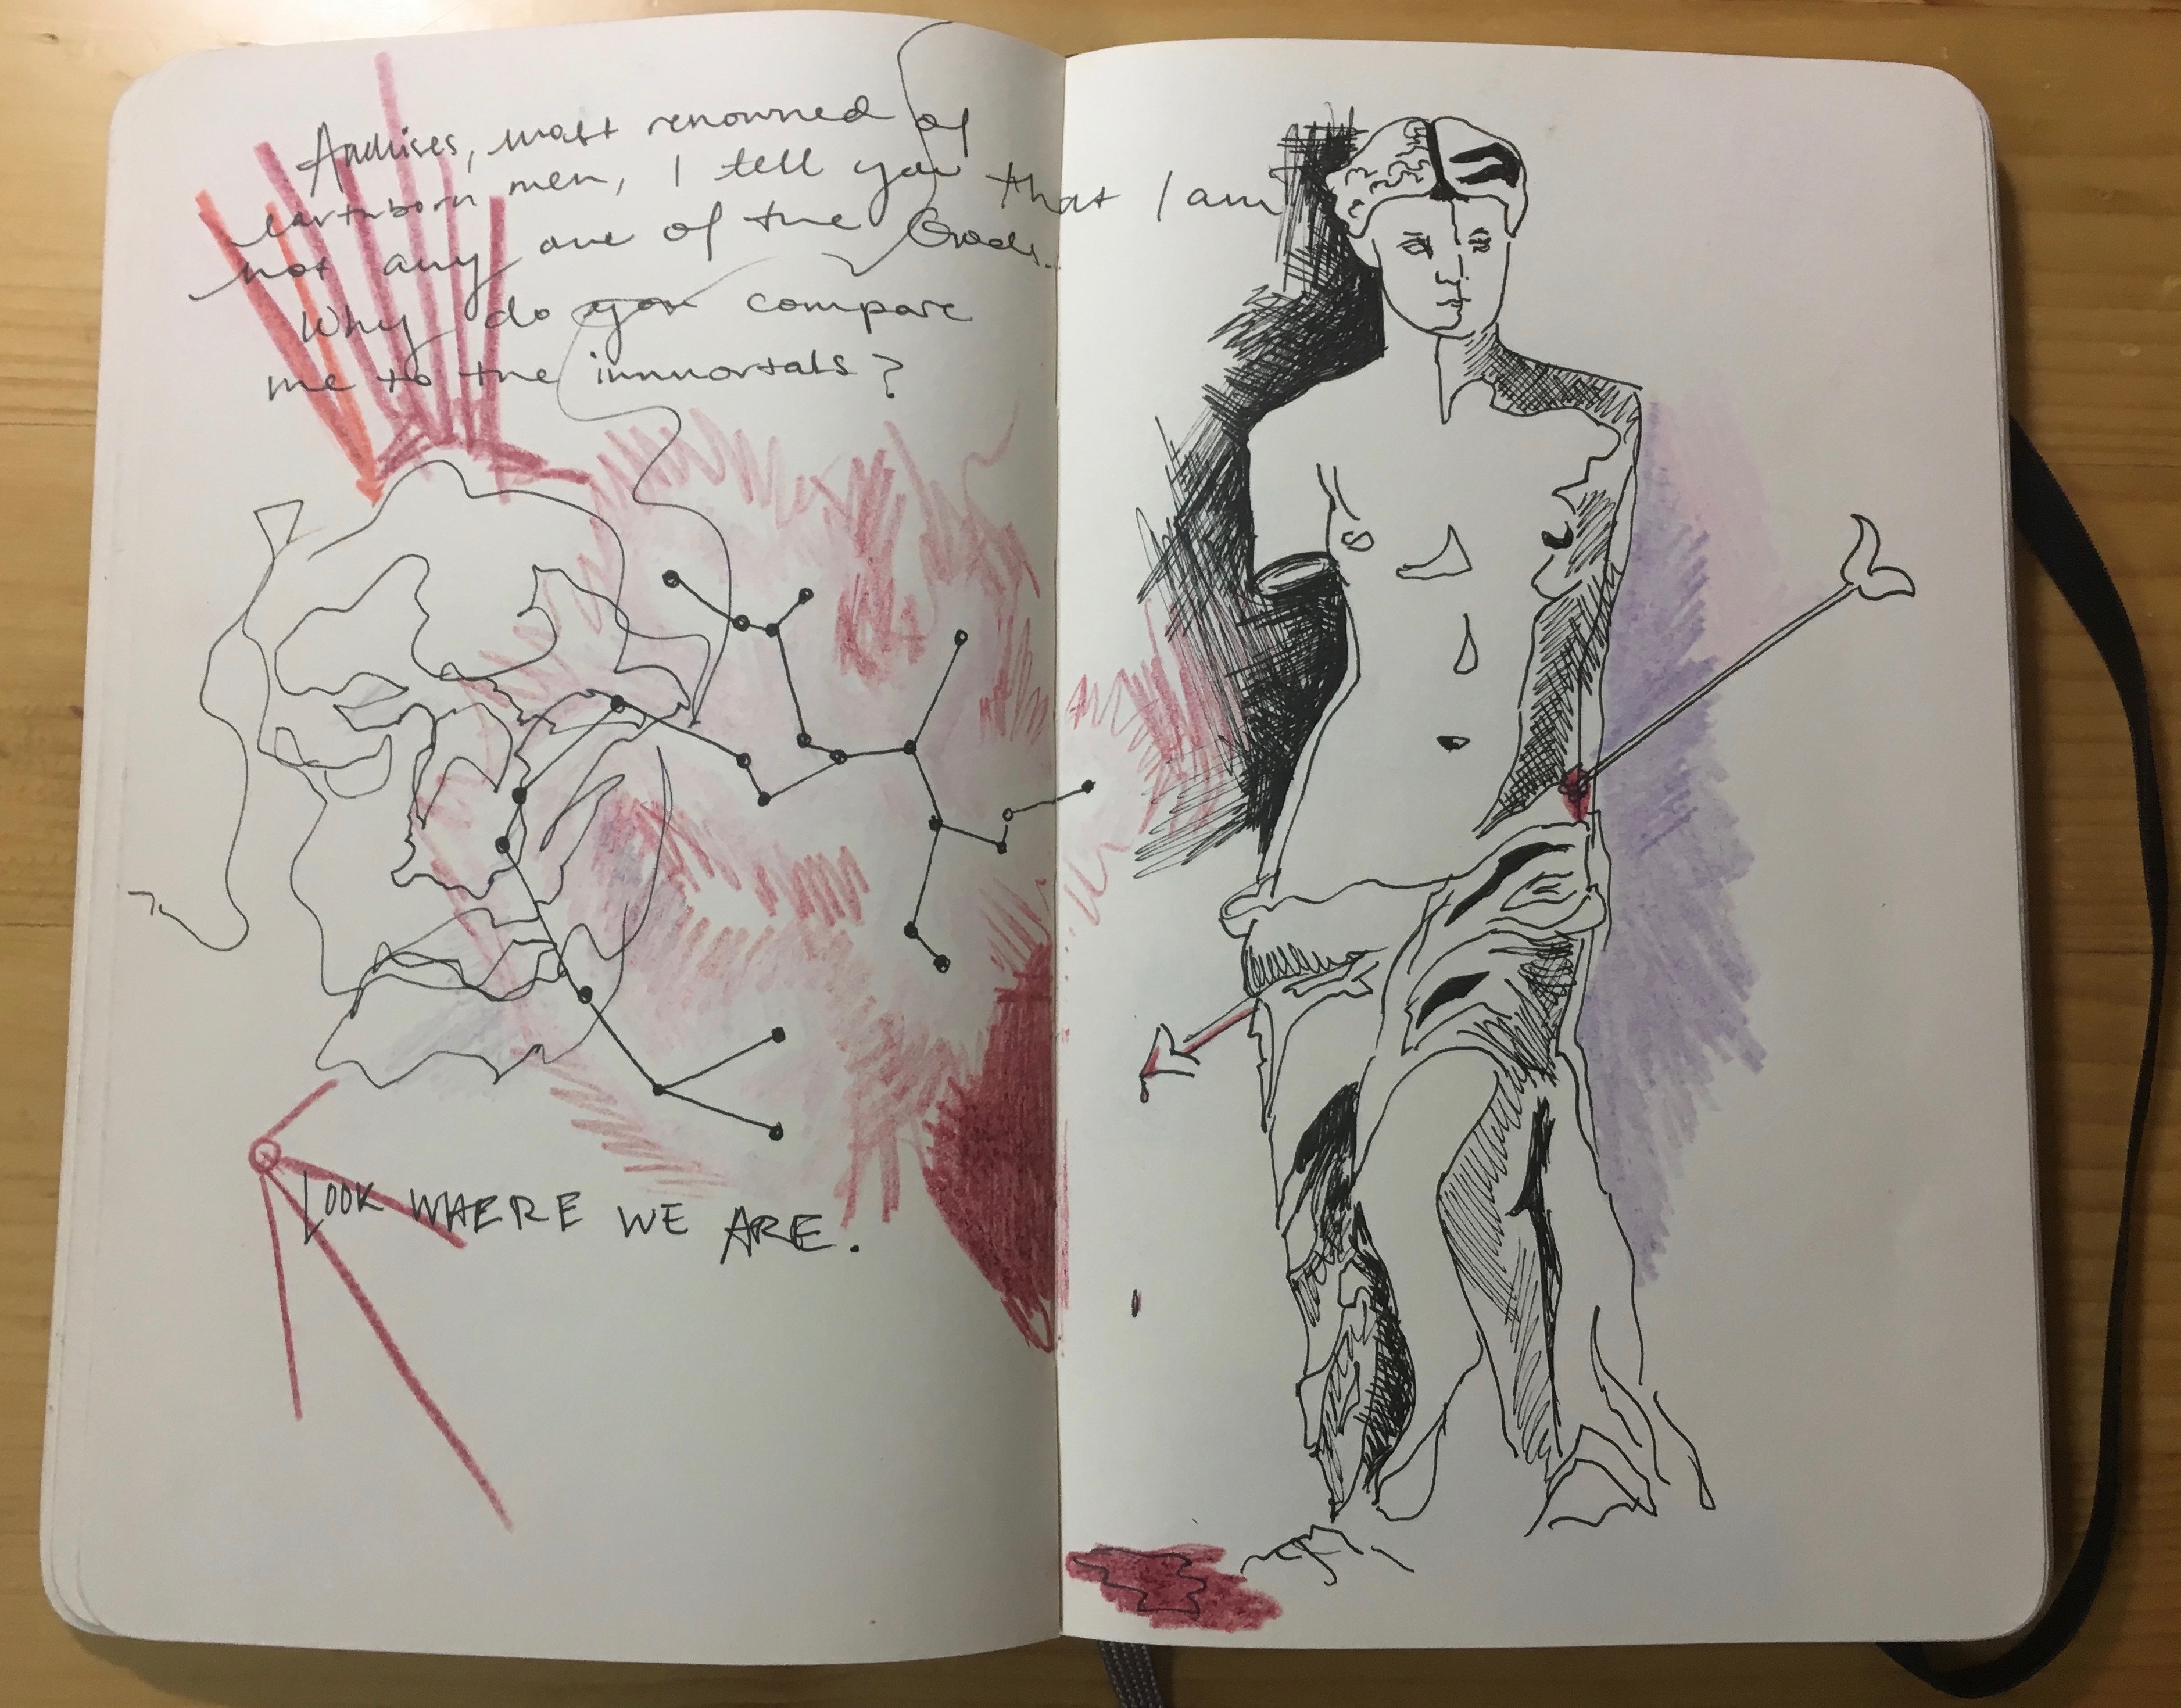 Anchises, most renowned of
earthborn men, I tell you that I am
not any one of the Gods.
Why do you compare
me to the immortals?
LOOK WHERE WE ARE.